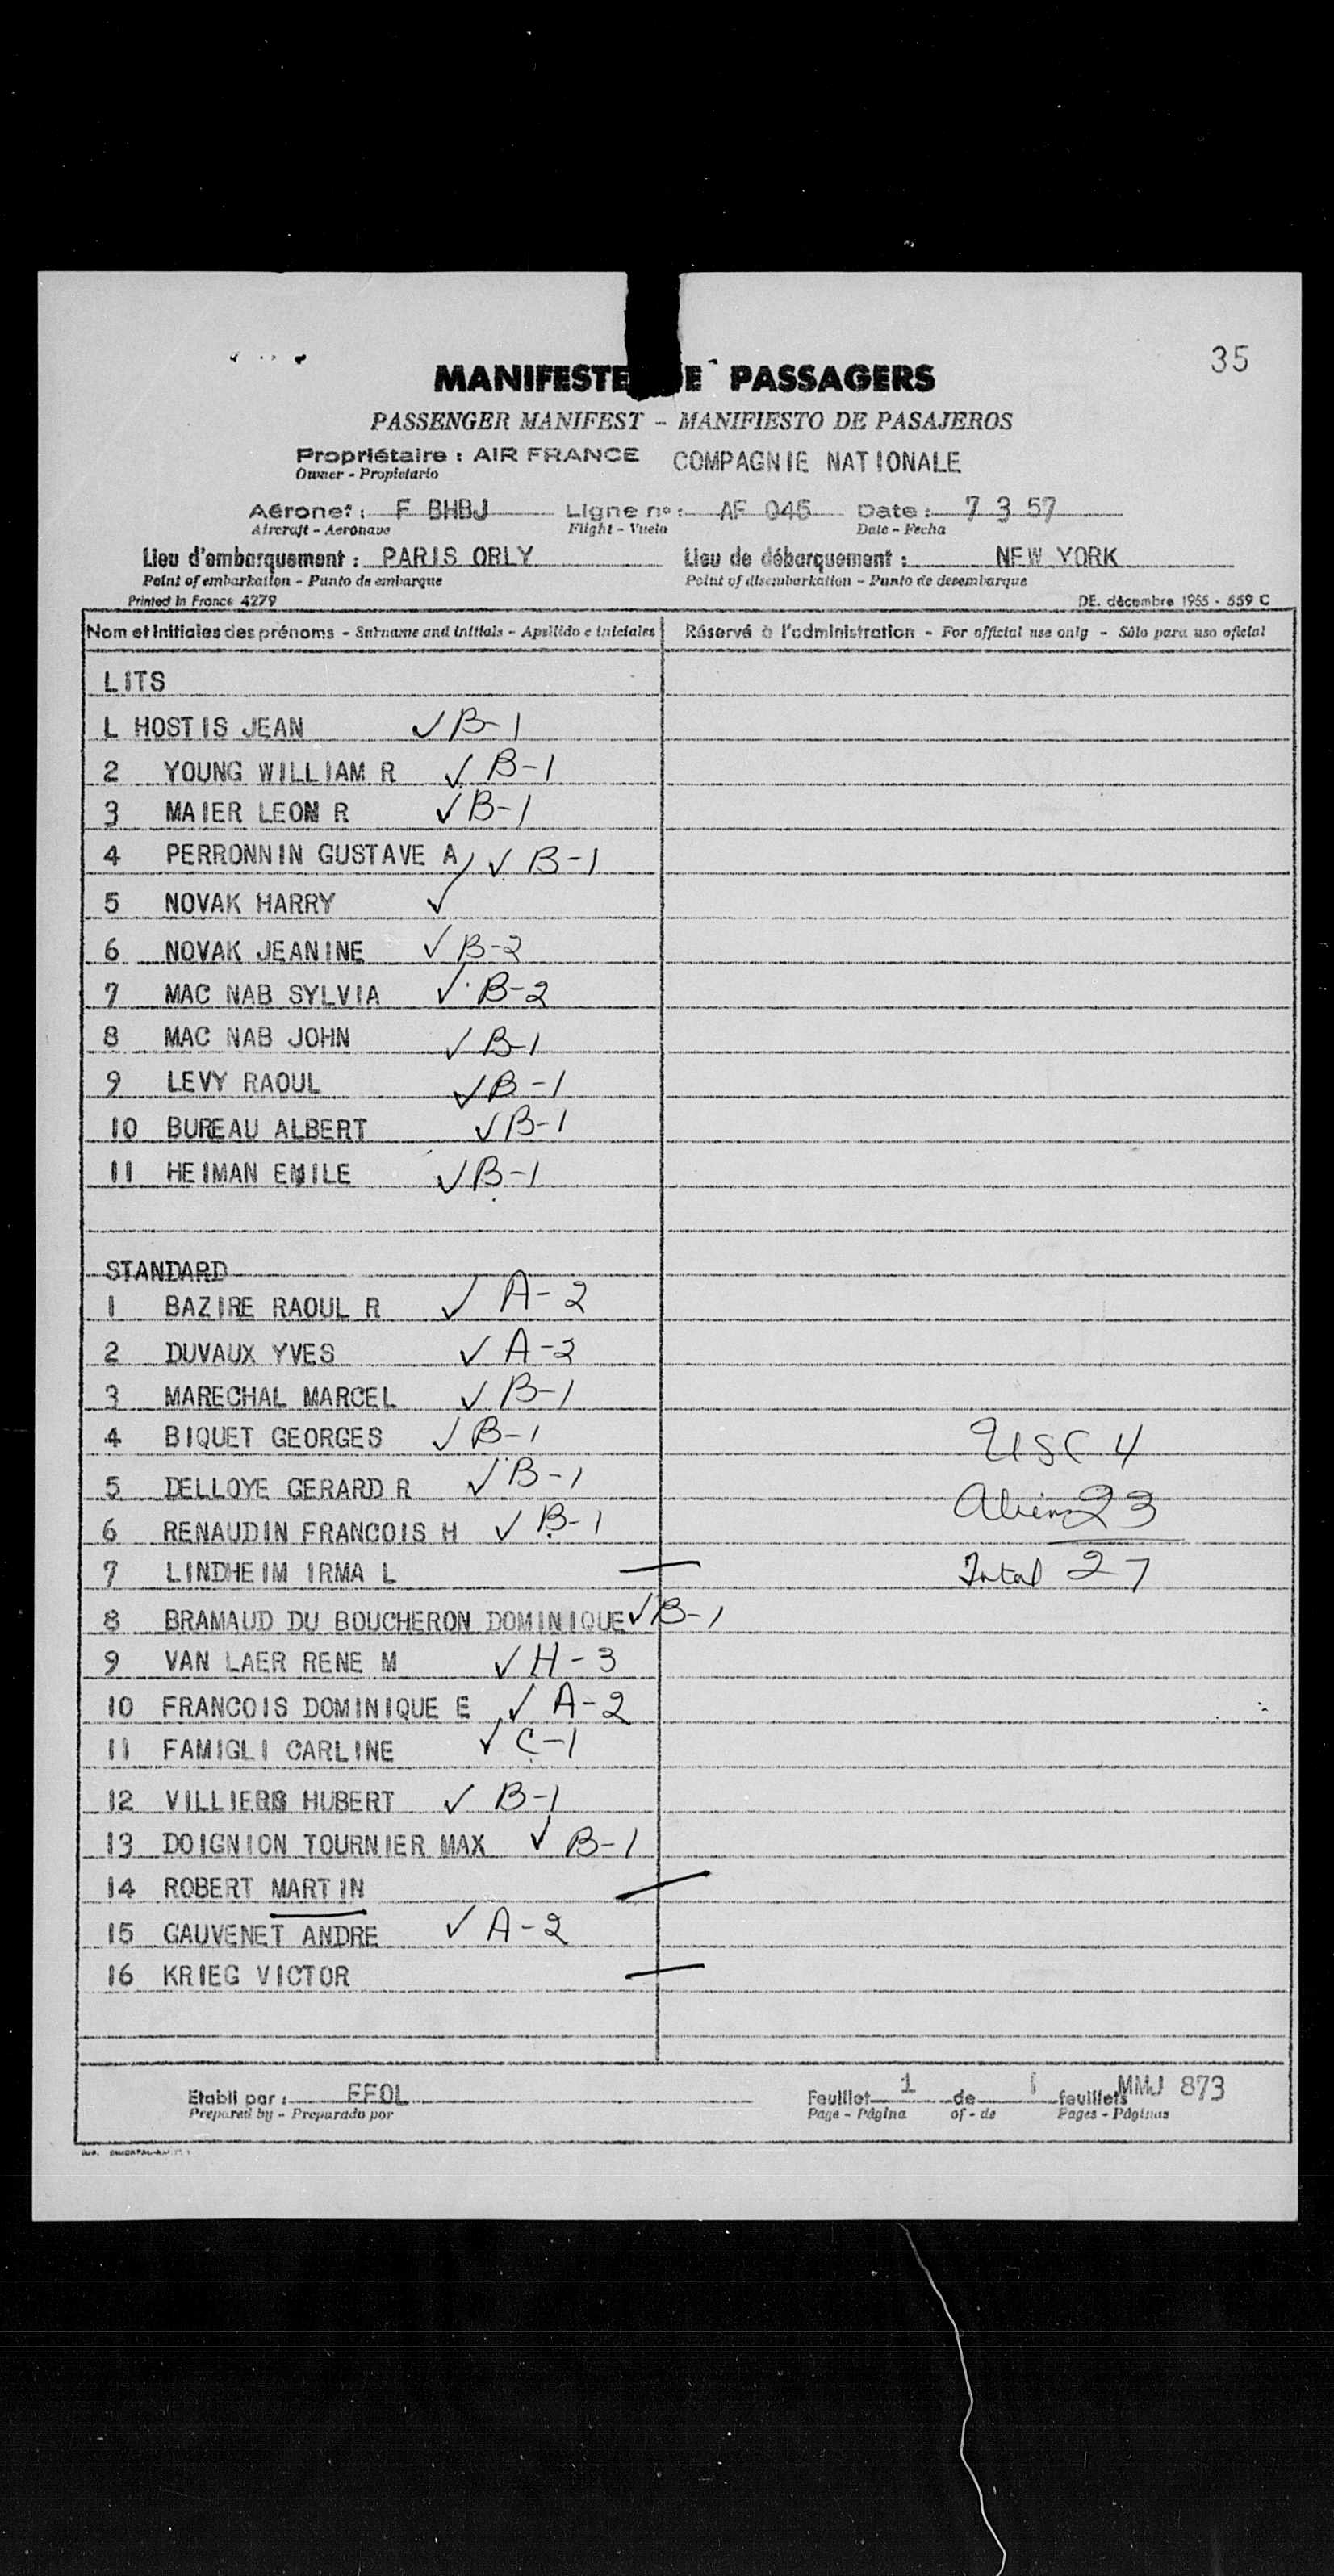 35
MANIFESTE DE PASSAGERS
PASSENGER MANIFEST - MANIFIESTO DE PASAJEROS
Propriétaire : AIR FRANCE COMPAGNIE NATIONALE
Owner - Propietario
Aéronef : F BHBJ Ligne no : AF 045 Date : 7 3 57
Aircraft - Aeronave Flight - Vuelo Date - Fecha
Lieu d'embarquement : PARIS ORLY Lieu de débarquement : NEW YORK
Point of embarkation - Punto de embarque Point of disembarkation - Punto de desembarque
Printed in France 4279 DE. décembre 1955 - 559 C
Nom et Initiales des prénoms - Surname and initials - Apellido e iniciales Réservé à l'administration - For official use only - Sólo para uso oficial
LITS
L HOSTIS JEAN ✓ B-1
2 YOUNG WILLIAM R ✓ B-1
3 MAIER LEON R ✓ B-1
4 PERRONNIN GUSTAVE A ✓ B-1
5 NOVAK HARRY ✓
6 NOVAK JEANINE ✓ B-2
7 MAC NAB SYLVIA ✓ B-2
8 MAC NAB JOHN ✓ B-1
9 LEVY RAOUL ✓ B-1
10 BUREAU ALBERT ✓ B-1
11 HEIMAN EMILE ✓ B-1
STANDARD
1 BAZIRE RAOUL R ✓ A-2
2 DUVAUX YVES ✓ A-2
3 MARECHAL MARCEL ✓ B-1
4 BIQUET GEORGES ✓ B-1 USC 4
5 DELLOYE GERARD R ✓ B-1 Alien 23
6 RENAUDIN FRANCOIS H ✓ B-1
7 LINDHEIM IRMA L — Total 27
8 BRAMAUD DU BOUCHERON DOMINIQUE ✓ B-1
9 VAN LAER RENE M ✓ H-3
10 FRANCOIS DOMINIQUE E ✓ A-2
11 FAMIGLI CARLINE ✓ C-1
12 VILLIERS HUBERT ✓ B-1
13 DOIGNION TOURNIER MAX ✓ B-1
14 ROBERT MARTIN —
15 GAUVENET ANDRE ✓ A-2
16 KRIEG VICTOR —
Etabli par : EFOL Feuillet 1 de 1 feuillets MMJ 873
Prepared by - Preparado por Page - Página of - de Pages - Páginas